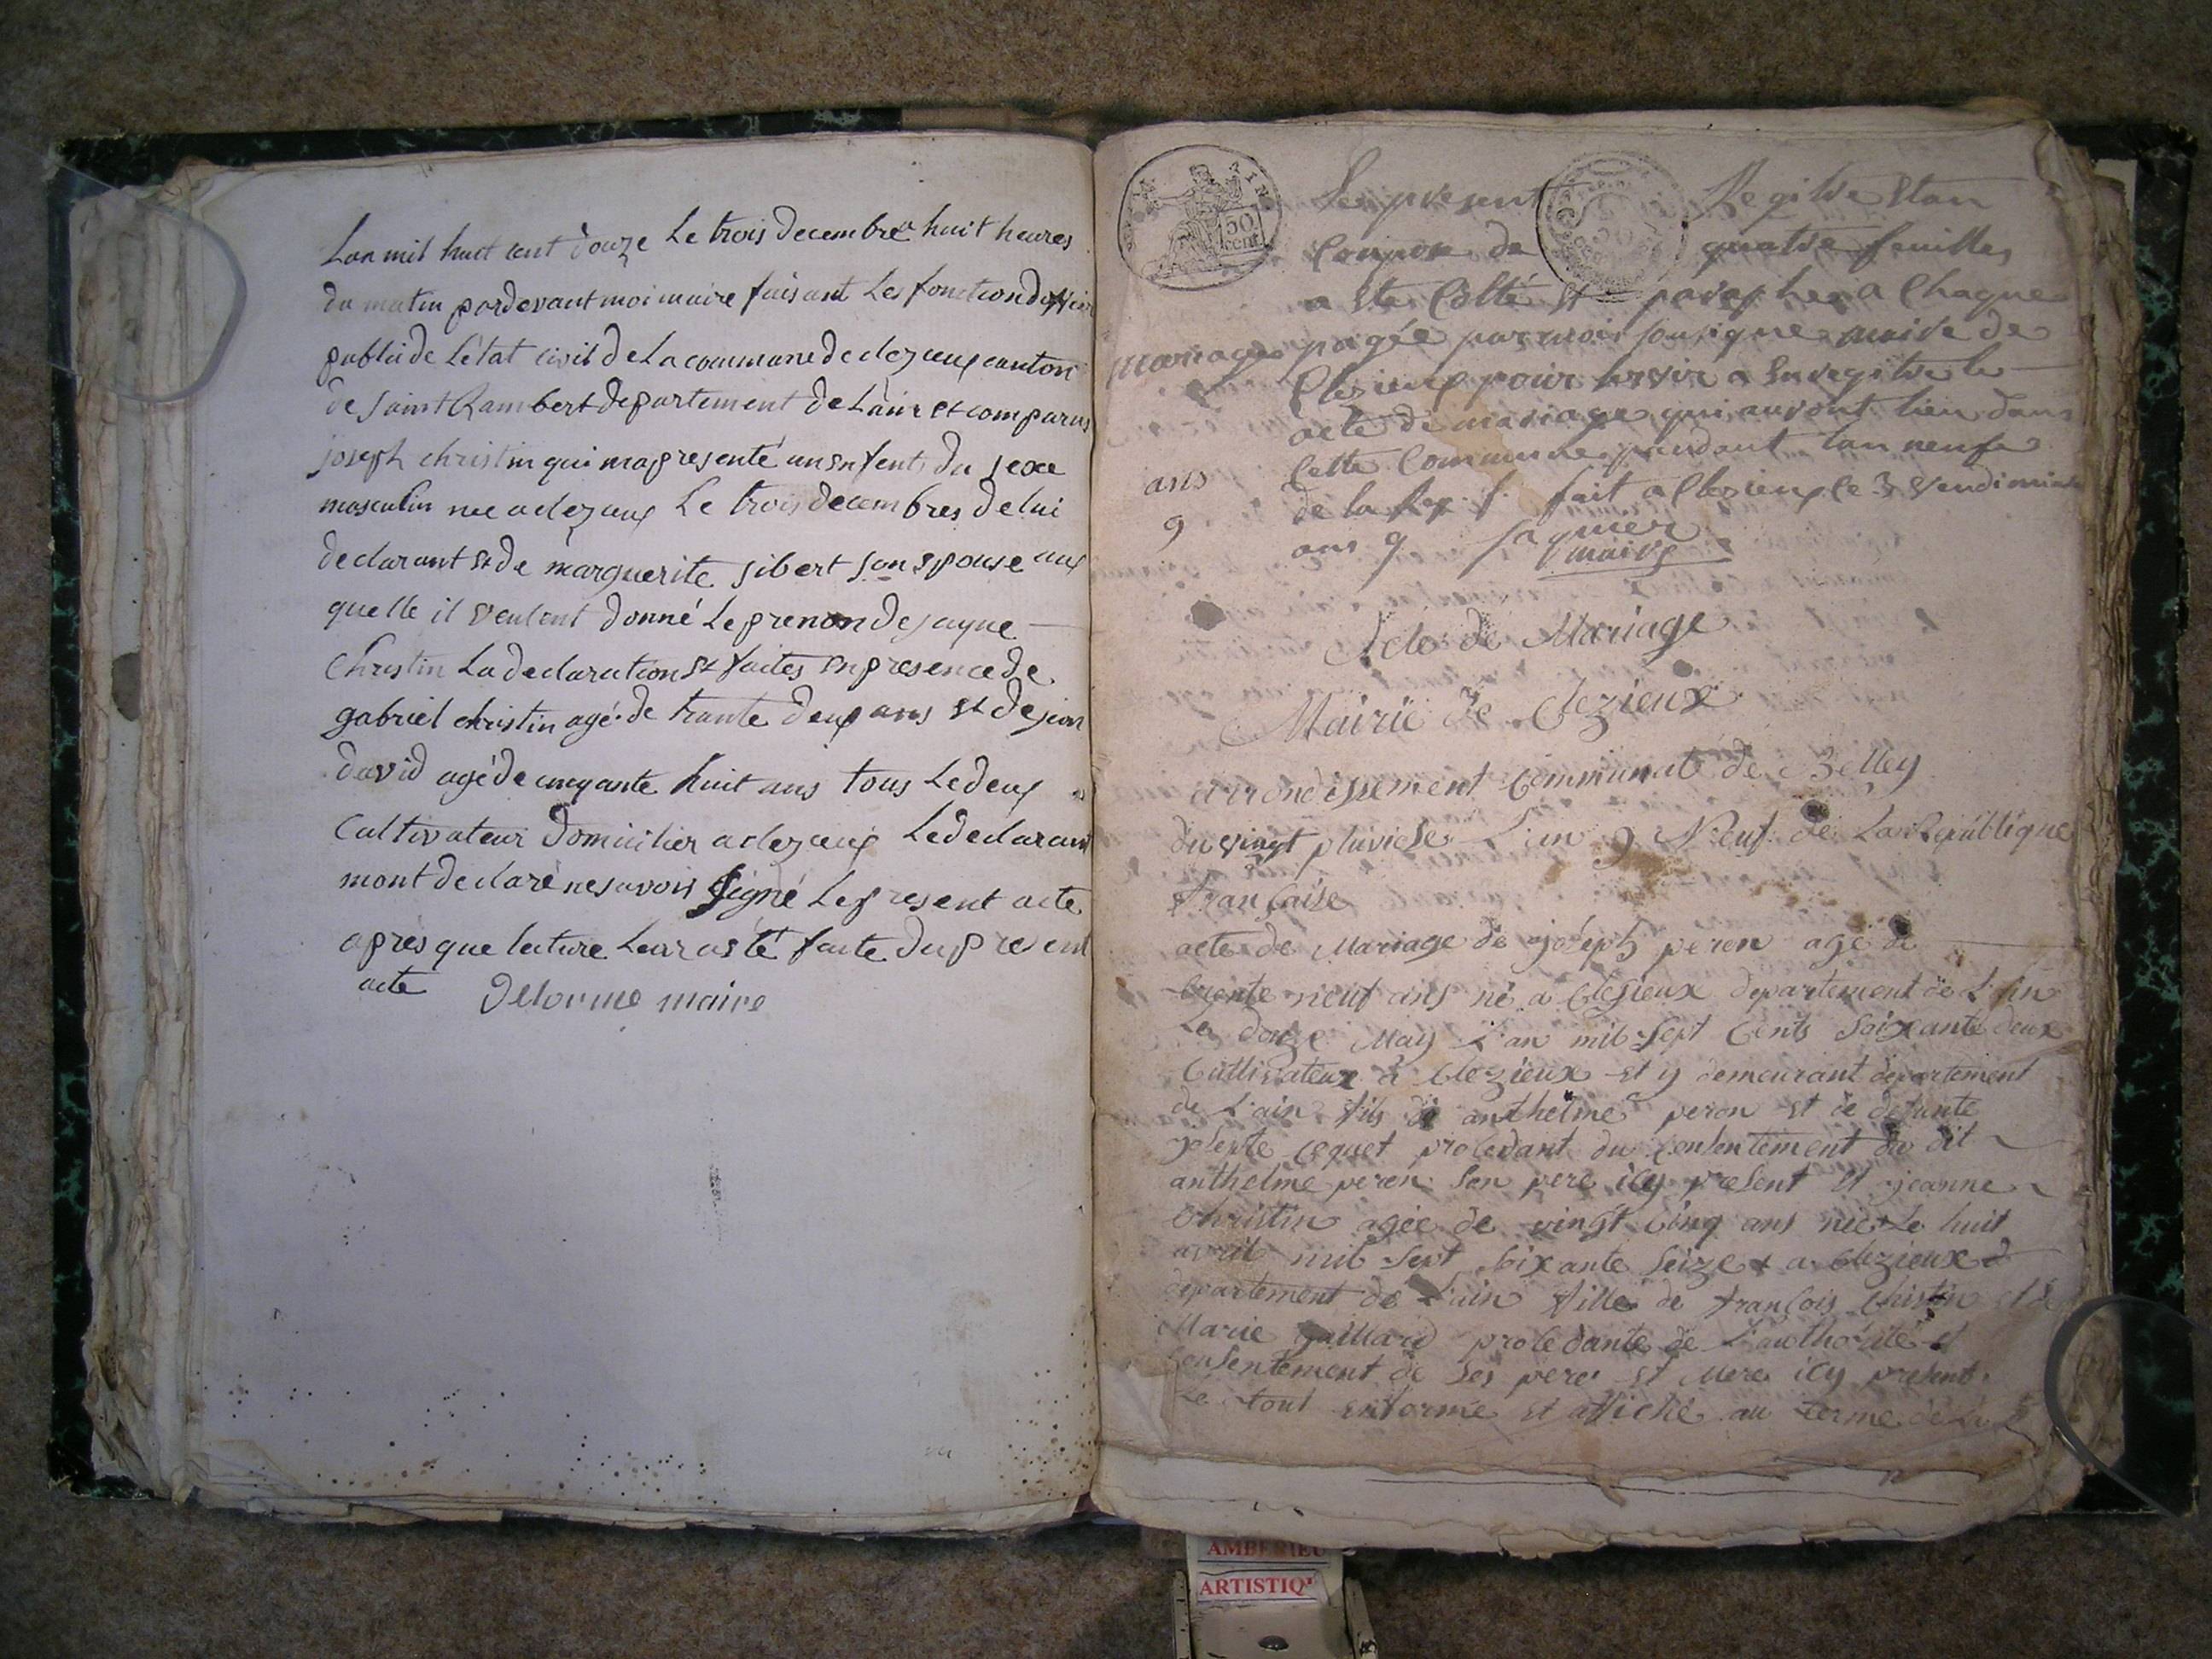 Lan mil huit cent douze Le trois decembre a huit heures
du matin pardevant moi maire faisant Les fonction dofficier
public de L'état civil de La commune de clezeux canton
de saint Rambert departement de L'ain et comparus
joseph christin qui ma presenté un enfent du sexe
masculin nee a clezeux Le trois decembres de lui
declarant et de marguerite sibert son epouse aux
quelle il veulent donné Le prenon de jaque
Christin La declaration et faites en presence de
gabriel christin agé de trante deux ans et de jean
david agé de cinqante huit ans tous Le deux
Cultivateur domicilier a clezeux Le declarant
mont declaré ne savoir Signé Le present acte
après que lecture Leur as té faite du present
acte Delorme maire
50 cent
Le present Registre etan
Compose de quatre feuilles
a ete Cotté et paraphe a Chaque
mariage pagée par moi sousigne maire de
Clezieux pour servir a enregitre le
acte de mariage qui auront lieu dans
Cette Commune pandant lan neufe
ans de la Rep. f. fait a Clezieux ce 3 vendimiaire
9 ans 9 jaquier
maire
Acte de Mariage
Mairie de Clezieux
arrondissement Communal de Belley
du vingt pluviose L'an 9 Neuf de La République
française
acte de Mariage de joseph peron agé de
trente neuf ans né a Clezieux departement de L'ain
Le douze May L'an mil sept Cents soixante deux
Cultivateur a Clezieux et y demeurant departement
de L'ain fils de anthelme peron et de defunte
josepte coquet procedant du consentement du dit
anthelme peron son pere icy present et jeanne
Christin agée de vingt Cinq ans née Le huit
avril mil sept soixante seize a Clezieux
departement de L'ain fille de françois Chistin et de
Marie gaillard procedante de L'authorité et
consentement de ses pere et Mere icy present
Le tout enforme et affiché au terme de La
AMBERIEU
ARTISTIQ